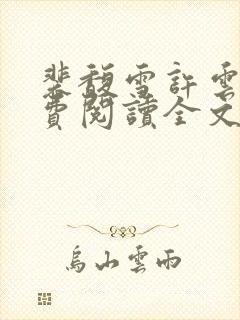 裴馥雪許雲
費閱讀全文
烏山雲雨